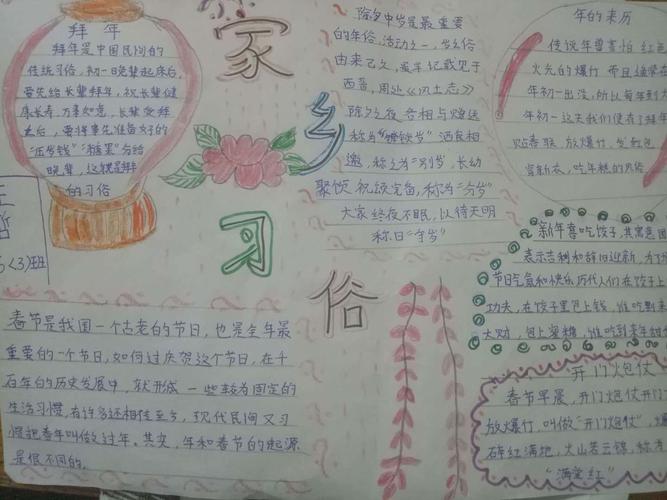 家
乡
习
俗
拜年
拜年是中国民间的
传统习俗,初一晚辈起床后,
要先给长辈拜年,祝长辈健
康长寿,万事如意,长辈受拜
之后,要将事先准备好的
“压岁钱”“糖果”分给
晚辈,这就是拜年
的习俗
5<3>班
除夕守岁是最重要
的年俗活动之一,守岁俗
由来已久,最早记载见于
西晋,周处《风土志》
除夕之夜各相与赠送
称为“馈岁”酒食相
邀,称之为“别岁”,长幼
聚饮祝颂完备,称为“分岁”
大家终夜不眠,以待天明
称曰“守岁”
年的来历
传说年兽害怕红色
火光的爆竹而且通常在
年初一出没,所以每年到
年初一这天我们便有了拜年
贴春联,放爆竹,发红包
穿新衣,吃年糕的风俗
新年喜吃饺子,其寓意团
表示吉利和辞旧迎新,为了
节日气氛和快乐历代人们在饺子
功夫,在饺子里包上钱,谁吃到来
大财,包上蜜糖,谁吃到来年甜
开门炮仗
春节早晨,开门炮仗开门
放爆竹,叫做“开门炮仗”,爆
碎红满地,火山若云锦,称为
“满堂红”
春节是我国一个古老的节日,也是全年最
重要的一个节日,如何过庆贺这个节日,在千
百年的历史发展中,就形成一些较为固定的
生活习惯,有许多还相传至今,现代民间又习
惯把春年叫做过年。其实,年和春节的起源
是很不同的。